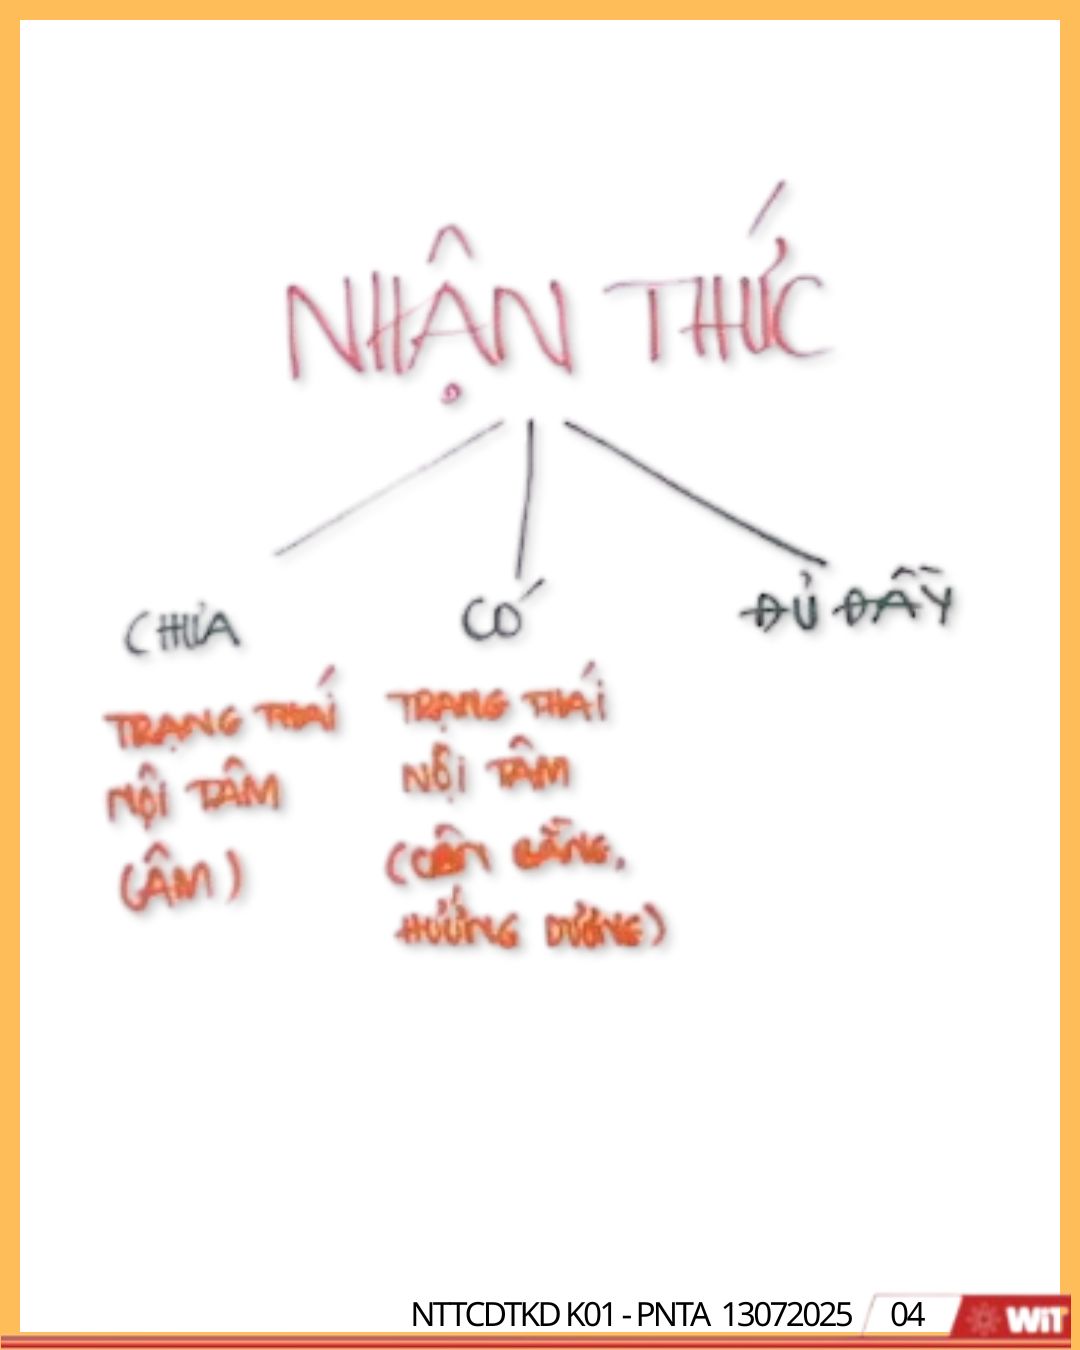 NHẬN THỨC
CHƯA
CÓ
ĐỦ ĐẦY
TRẠNG THÁI
NỘI TÂM
(ÂM)
TRẠNG THÁI
NỘI TÂM
(CÂN BẰNG,
HƯỚNG DƯƠNG)
NTTCDTKD K01 - PNTA 13072025
04
WiT